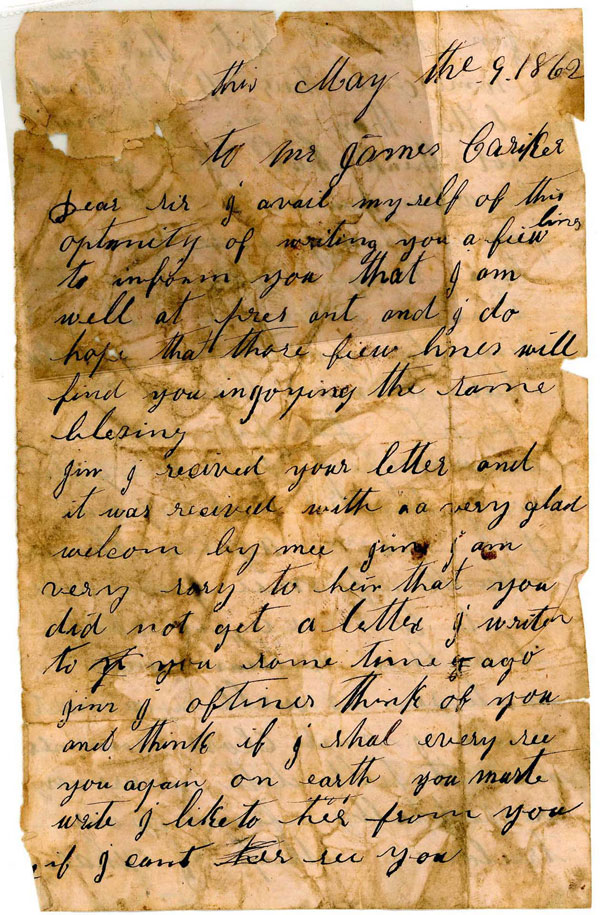 this May the .9. 1862
to mr James Cariker
Dear sir J avail my self of this
optunity of writing you a fiew lines
to inform you that J am
well at pres ant and J do
hope that those fiew lines will
find you ingoying the same
blesing
Jim J recived your letter and
it was recived with aa very glad
welcom by mee Jim J am
very sory to heir that you
did not get a letter J writen
to you some time ago
Jim J oftines think of you
and think if J shal every see
you again on earth you muste
write J like to her from you
if J cant see you